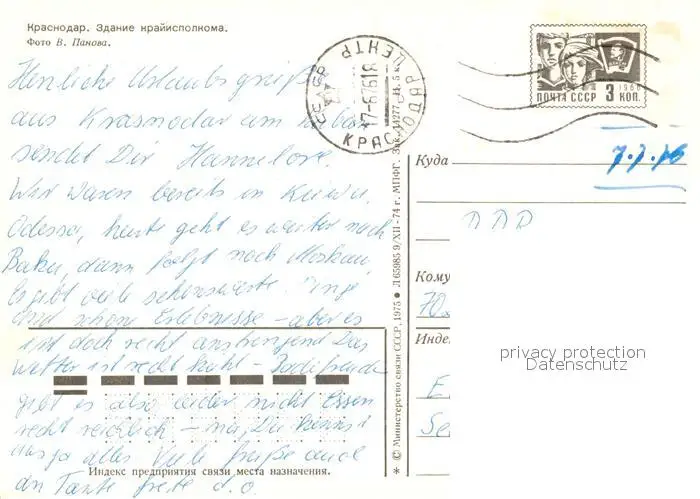 Краснодар. Здание крайисполкома.
Фото В. Панова.
Herzliche Urlaubsgrüße
aus Krasnodar am
sendet Dir Hannelore.
Wir waren bereits in Kiew,
Odessa, heute geht es weiter nach
Baku, dann folgt noch Moskau,
Es gibt viele sehenswerte Dinge
und schöne Erlebnisse – aber es
ist doch recht anstrengend Das
Wetter ist recht kühl – Badefreude
gibt es also leider nicht Essen
recht reichlich – na, Du kennst
das ja alles Viele Grüße auch
an Tante Grete d. O.
Индекс предприятия связи места назначения.
* © Министерство связи СССР, 1975 ● Л 65985 9/XII - 74 г. МПФГ. Зак. 14277. Ц. 5 к.
СССР
КРАСНОДАР
ПОЧТА СССР 3 КОП.
1966
7.7.76
Куда
DDR
Кому
70
Инде
E
Se
privacy protection
Datenschutz